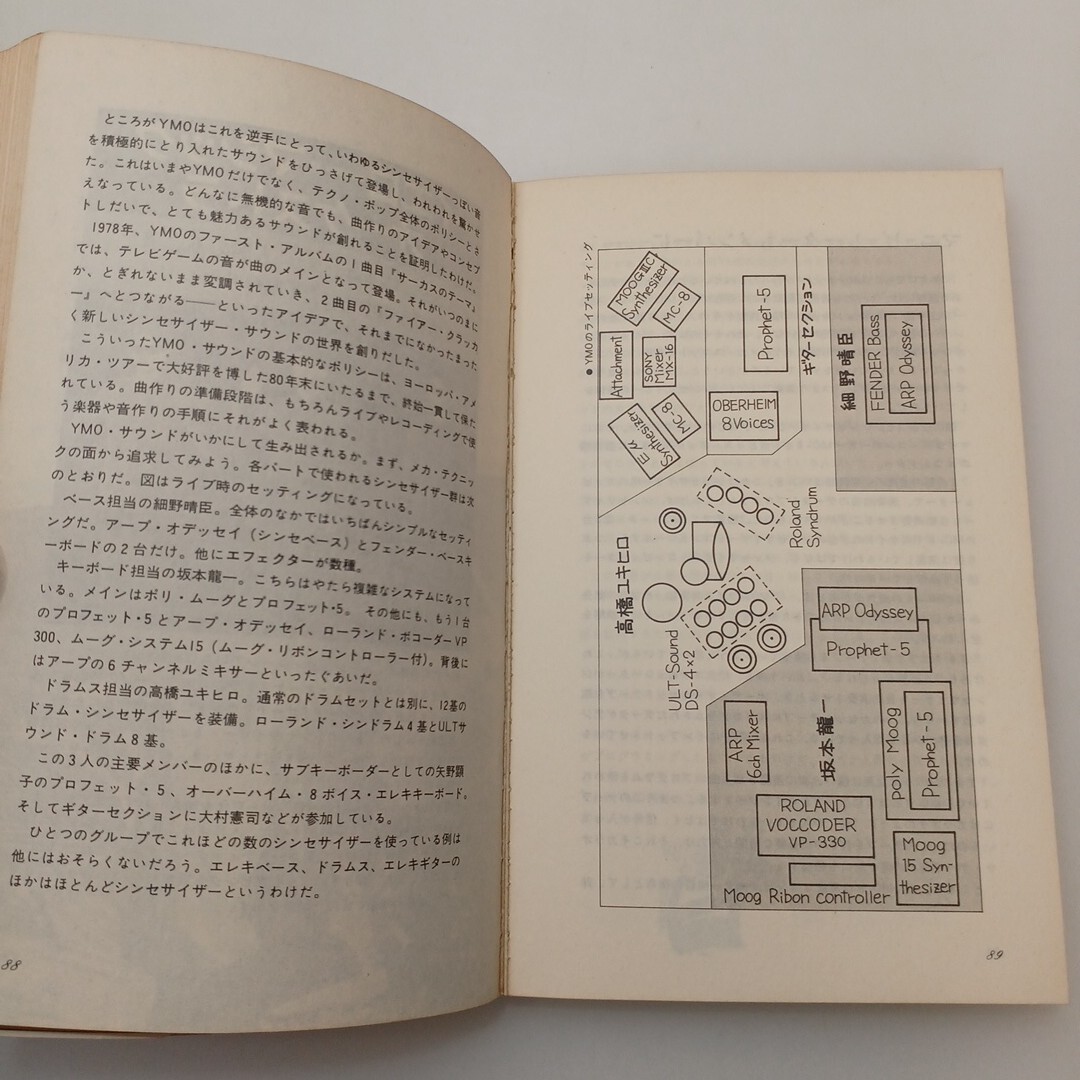 ところがYMOはこれを逆手にとって、いわゆるシンセサイザーっぽい音
を積極的にとり入れたサウンドをひっさげて登場し、われわれを驚かせ
た。これはいまやYMOだけでなく、テクノ・ポップ全体のポリシーとさ
えなっている。どんなに無機的な音でも、曲作りのアイデアやコンセプ
トしだいで、とても魅力あるサウンドが創れることを証明したわけだ。
1978年、YMOのファースト・アルバムの1曲目『サーカスのテーマ』
では、テレビゲームの音が曲のメインとなって登場。それがいつのまに
か、とぎれないまま変調されていき、2曲目の『ファイアー・クラッカ
ー』へとつながる——といったアイデアで、それまでになかったまった
く新しいシンセサイザー・サウンドの世界を創りだした。
こういったYMO・サウンドの基本的なポリシーは、ヨーロッパ・アメ
リカ・ツアーで大好評を博した80年末にいたるまで、終始一貫して保た
れている。曲作りの準備段階は、もちろんライブやレコーディングで使
う楽器や音作りの手順にそれがよく表われる。
YMO・サウンドがいかにして生み出されるか。まず、メカ・テクニッ
クの面から追求してみよう。各パートで使われるシンセサイザー群は次
のとおりだ。図はライブ時のセッティングになっている。
ベース担当の細野晴臣。全体のなかではいちばんシンプルなセッティ
ングだ。アープ・オデッセイ（シンセベース）とフェンダー・ベースキ
ーボードの2台だけ。他にエフェクターが数種。
キーボード担当の坂本龍一。こちらはやたら複雑なシステムになって
いる。メインはポリ・ムーグとプロフェット・5。その他にも、もう1台
のプロフェット・5とアープ・オデッセイ、ローランド・ボコーダーVP
300、ムーグ・システム15（ムーグ・リボンコントローラー付）。背後に
はアープの6チャンネルミキサーといったぐあいだ。
ドラムス担当の高橋ユキヒロ。通常のドラムセットとは別に、12基の
ドラム・シンセサイザーを装備。ローランド・シンドラム4基とULTサ
ウンド・ドラム8基。
この3人の主要メンバーのほかに、サブキーボーダーとしての矢野顕
子のプロフェット・5、オーバーハイム・8ボイス・エレキキーボード。
そしてギターセクションに大村憲司などが参加している。
ひとつのグループでこれほどの数のシンセサイザーを使っている例は
他にはおそらくないだろう。エレキベース、ドラムス、エレキギターの
ほかはほとんどシンセサイザーというわけだ。
88
●YMOのライブセッティング
MOOG ⅢC
Synthesizer
MC-8
Attachment
SONY
Mixer
MX-16
MC-8
Eμ
Synthesizer
Prophet-5
OBERHEIM
8Voices
ギターセクション
細野晴臣
FENDER Bass
ARP Odyssey
高橋ユキヒロ
Roland
Syndrum
ULT-Sound
DS-4×2
ARP Odyssey
Prophet-5
坂本龍一
ARP
6ch Mixer
poly Moog
Prophet-5
ROLAND
VOCCODER
VP-330
Moog
15 Syn-
thesizer
Moog Ribon controller
89